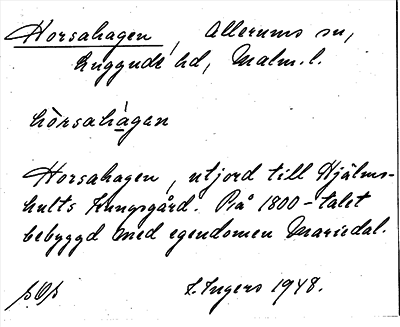 Horsahagen, Allerums sn,
Luggude hd, Malm. l.
hòrsahàgen
Horsahagen, utjord till Hjälms-
hults Kungsgård. På 1800-talet
bebyggd med egendomen Mariedal.
I. Ingers 1948.